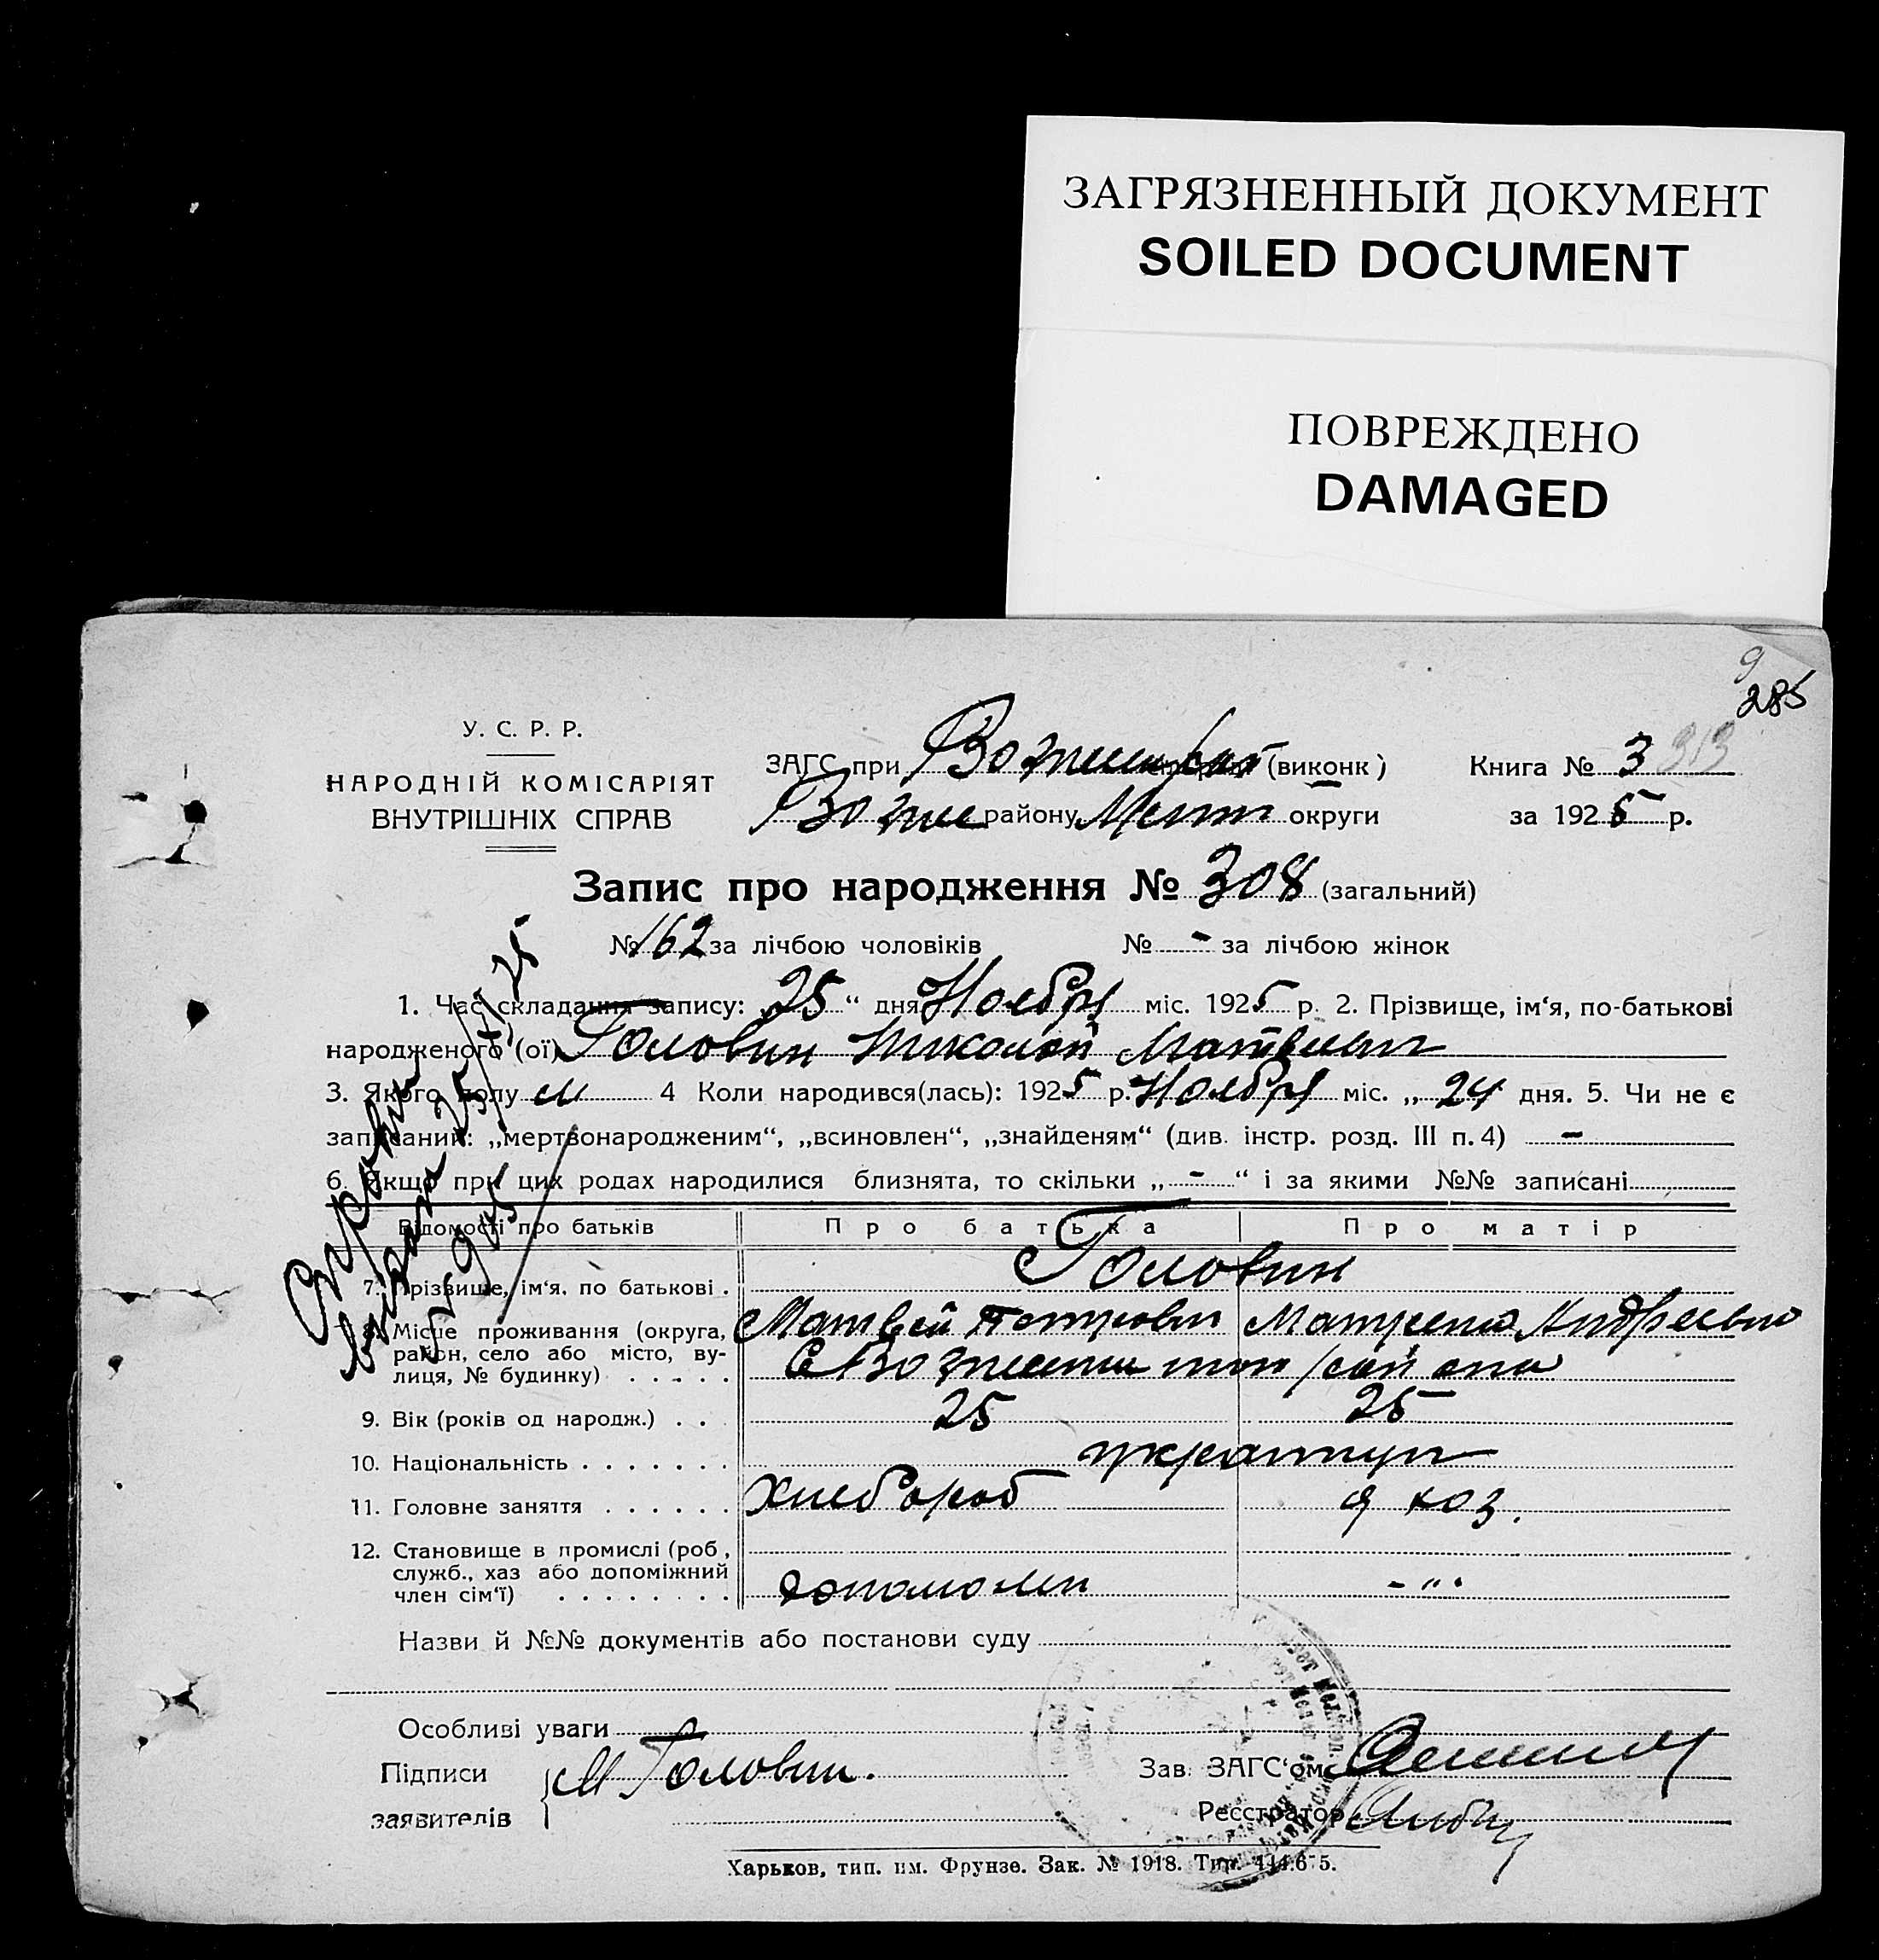 ЗАГРЯЗНЕННЫЙ ДОКУМЕНТ
SOILED DOCUMENT
ПОВРЕЖДЕНО
DAMAGED
9
285
У. С. Р. Р.
НАРОДНІЙ КОМІСАРІЯТ
ВНУТРІШНІХ СПРАВ
ЗАГС при (виконк)
Книга № 3 313
району Мелит округи
за 1925 р.
Запис про народження № 308 (загальний)
№ 162 за лічбою чоловіків № - за лічбою жінок
1. Час складання запису: „25“ дня Ноября міс. 1925 р. 2. Прізвище, ім‘я, по-батькові
народженого (ої) Головин Николай
3. Якого полу м 4 Коли народився(лась): 1925 р. Ноября міс. „24 дня. 5. Чи не є
записаний: „мертвонародженим“, „всиновлен“, „знайденям“ (див. інстр. розд. III п. 4) -
6. Якщо при цих родах народилися близнята, то скільки „-“ і за якими №№ записані
Відомості про батьків Про батька Про матір
7. Прізвище, ім‘я. по батькові . Головин
Матвей Петрови Матрена Андреевна
8. Місце проживання (округа,
район, село або місто, ву-
лиця, № будинку) . . . . .
9. Вік (років од народж.) . . 25 25
10. Національність . . . . . . .
11. Головне заняття . . . . . . Хлебороб д хоз.
12. Становище в промислі (роб,
служб., хаз або допоміжний
член сім‘ї) . . . . . . . . - " -
Назви й №№ документів або постанови суду
Особливі уваги
Підписи М Головин. Зав. ЗАГС‘ом
заявителів Реєстратор
Харьков, тип. им. Фрунзе. Зак. № 1918.